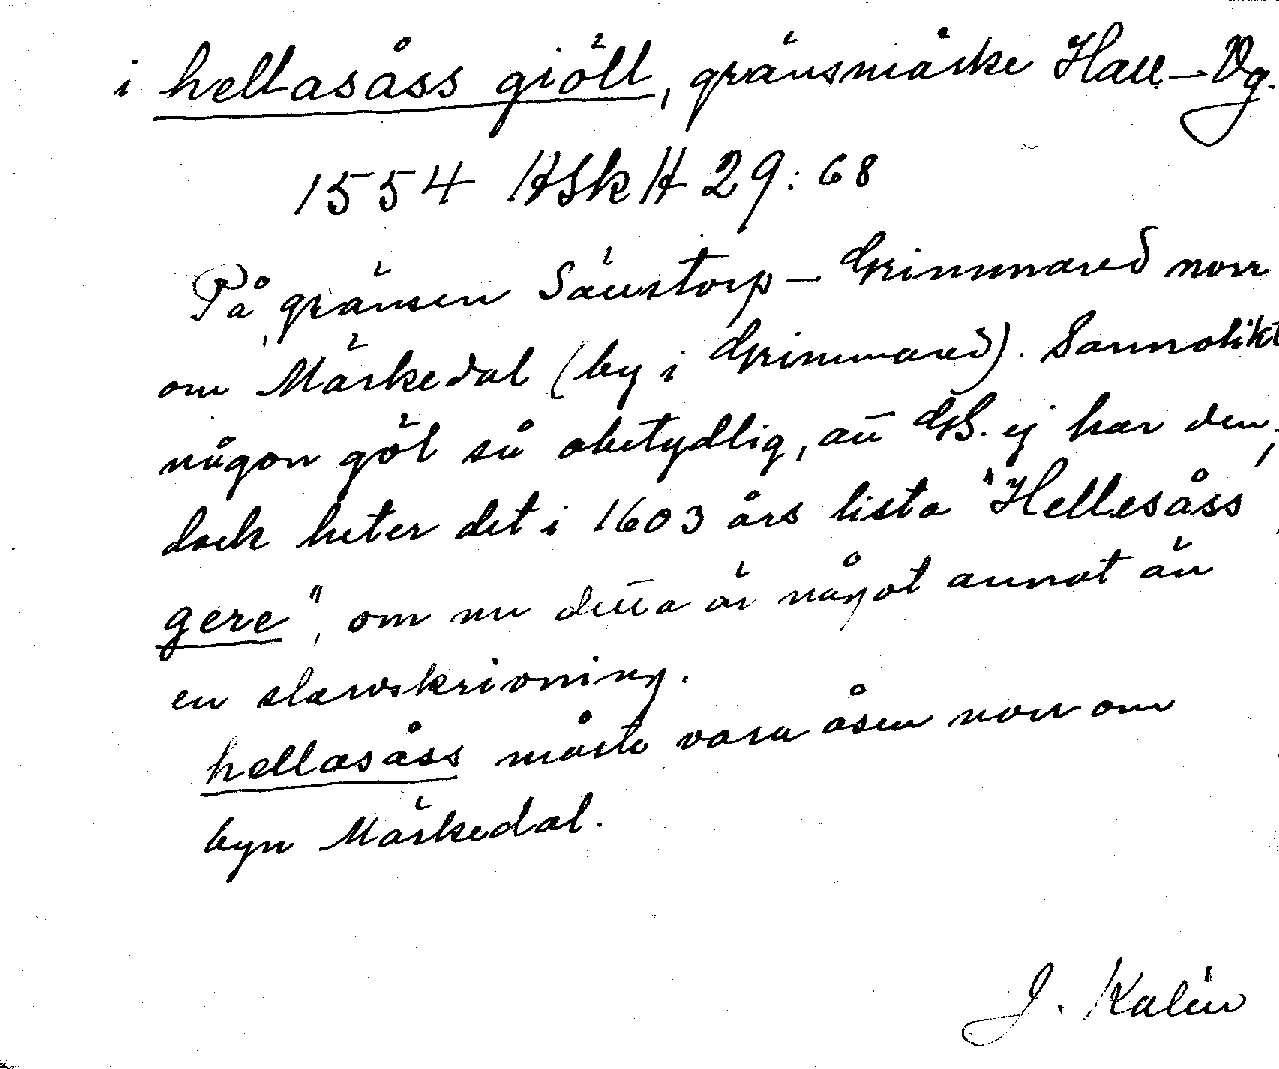 i hellasåss giöll, gränsmärke Hall–Vg.
1554 HSkH 29:68
På gränsen Säustorp – Grimmared norr
om Märkedal (by i Grimmared). Sannolikt
någon göl så obetydlig, att GS. ej har den;
dock heter det i 1603 års lista "Hellesåss
gere", om nu detta är något annat än
en slarvskrivning.
hellasåss måste vara åsen norr om
byn Märkedal.
J. Kalén